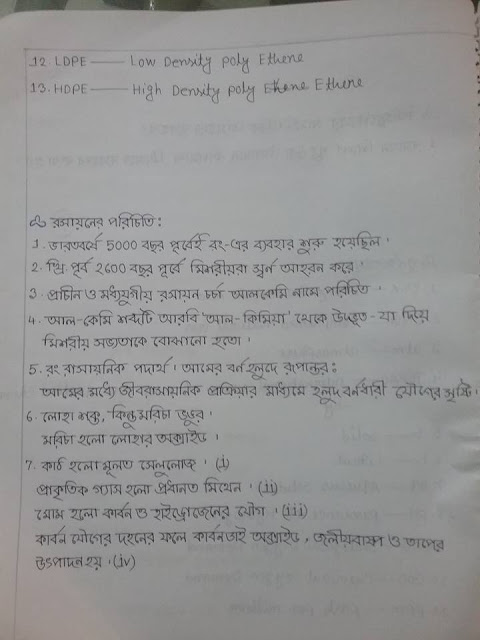 12. LDPE —— Low Density Poly Ethene
13. HDPE —— High Density Poly Ethene
রসায়নের পরিচিতি:
1. ভারতবর্ষে 5000 বছর পূর্বেই রং-এর ব্যবহার শুরু হয়েছিল।
2. খ্রি: পূর্ব 2600 বছর পূর্বে মিশরীয়রা স্বর্ন আহরন করে।
3. প্রাচীন ও মধ্যযুগীয় রসায়ন চর্চা আলকেমি নামে পরিচিত।
4. আল-কেমি শব্দটি আরবি 'আল-কিমিয়া' থেকে উদ্ভূত - যা দিয়ে
মিশরীয় সভ্যতাকে বোঝানো হতো।
5. রং রাসায়নিক পদার্থ। আমের বর্ন হলুদে রূপান্তর:
আমের মধ্যে জীবরাসায়নিক প্রক্রিয়ার মাধ্যমে হলুদ বর্নধারী যৌগের সৃষ্টি।
6. লোহা শক্ত, কিন্তু মরিচা ভঙ্গুর।
মরিচা হলো লোহার অক্সাইড।
7. কাঠ হলো মূলত সেলুলোজ। (i)
প্রাকৃতিক গ্যাস হলো প্রধানত মিথেন। (ii)
মোম হলো কার্বন ও হাইড্রোজেনের যৌগ। (iii)
কার্বন যৌগের দহনের ফলে কার্বন ডাই অক্সাইড, জলীয়বাষ্প ও তাপের
উৎপাদন হয়। (iv)